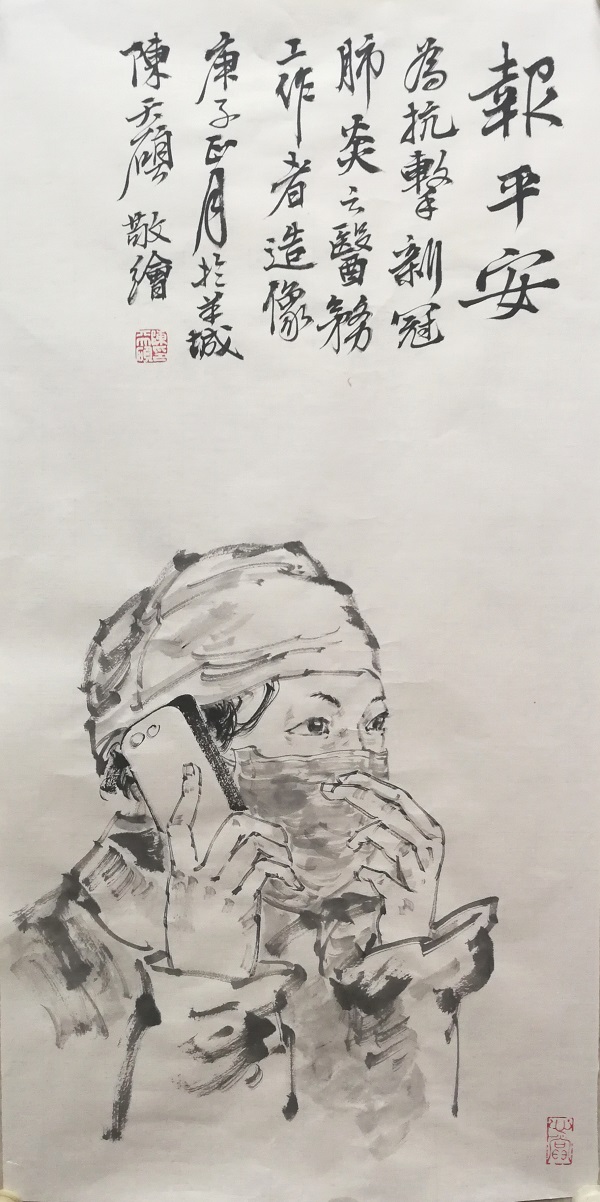 報平安
為抗擊新冠
肺炎之醫務
工作者造像
庚子正月於羊城
陳天碩敬繪